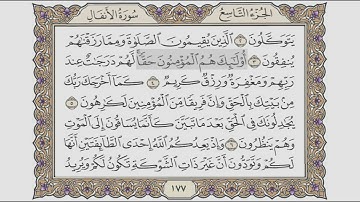 الجزء التاسع سورة الأنفال
يَتَوَكَّلُونَ ٢ الَّذِينَ يُقِيمُونَ الصَّلَوٰةَ وَمِمَّا رَزَقْنَٰهُمْ
يُنفِقُونَ ٣ أُولَٰئِكَ هُمُ الْمُؤْمِنُونَ حَقًّا لَّهُمْ دَرَجَٰتٌ عِندَ
رَبِّهِمْ وَمَغْفِرَةٌ وَرِزْقٌ كَرِيمٌ ٤ كَمَا أَخْرَجَكَ رَبُّكَ
مِن بَيْتِكَ بِالْحَقِّ وَإِنَّ فَرِيقًا مِّنَ الْمُؤْمِنِينَ لَكَٰرِهُونَ ٥
يُجَٰدِلُونَكَ فِي الْحَقِّ بَعْدَ مَا تَبَيَّنَ كَأَنَّمَا يُسَاقُونَ إِلَى الْمَوْتِ
وَهُمْ يَنظُرُونَ ٦ وَإِذْ يَعِدُكُمُ اللَّهُ إِحْدَى الطَّائِفَتَيْنِ أَنَّهَا
لَكُمْ وَتَوَدُّونَ أَنَّ غَيْرَ ذَاتِ الشَّوْكَةِ تَكُونُ لَكُمْ وَيُرِيدُ
١٧٧